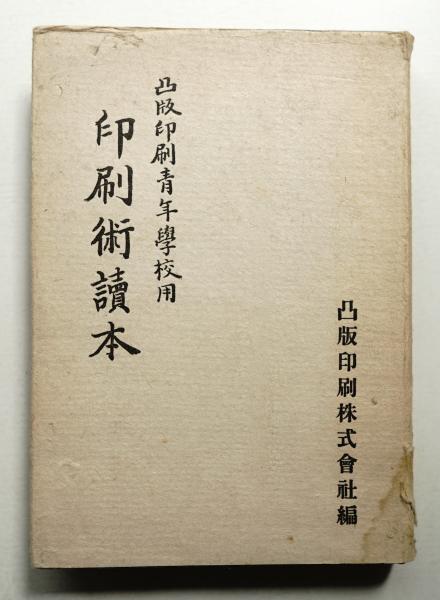 凸版印刷株式會社編
凸版印刷青年學校用
印刷術讀本